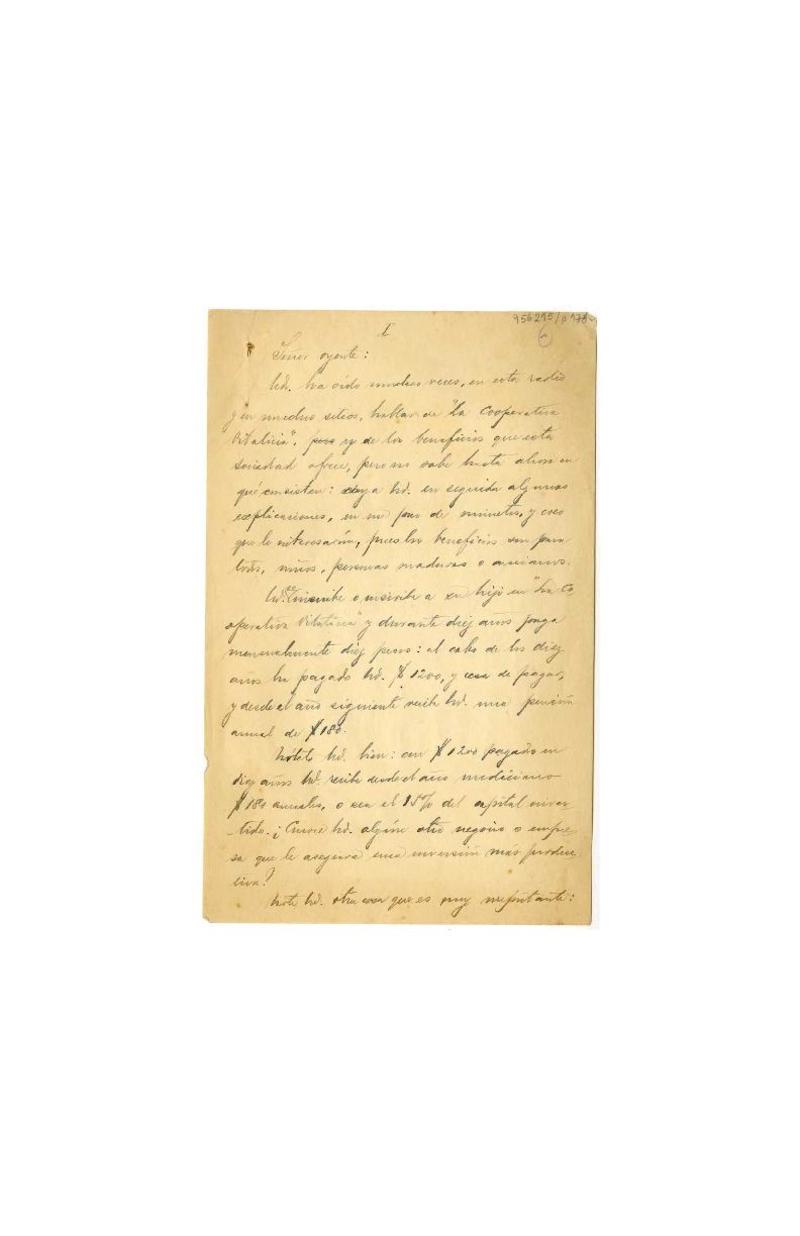 I
956295/p 178
6
Señor oyente:
Ud. ha oído muchas veces, en esta radio
y en muchos sitios, hablar de "La Cooperativa
Vitalicia", y de los beneficios que esta
sociedad ofrece, pero no sabe hasta ahora en
qué consisten: oiga Ud. en seguida algunas
explicaciones, en un par de minutos, y creo
que le interesarán, pues los beneficios son para
todos, niños, personas maduras o ancianos.
Ud. se inscribe o inscribe a su hijo en "La Co
operativa Vitalicia" y durante diez años paga
mensualmente diez pesos: al cabo de los diez
años ha pagado Ud. $ 1200, y cesa de pagar,
y desde el año siguiente recibe Ud. una pensión
anual de $ 180.
Nótelo Ud. bien: con $ 1200 pagados en
diez años Ud. recibe desde el año undécimo
$ 180 anuales, o sea el 15% del capital inver
-tido. ¿Conoce Ud. algún otro negocio o empre
sa que le asegure una inversión más produc
tiva?
Note Ud. otra cosa que es muy importante: